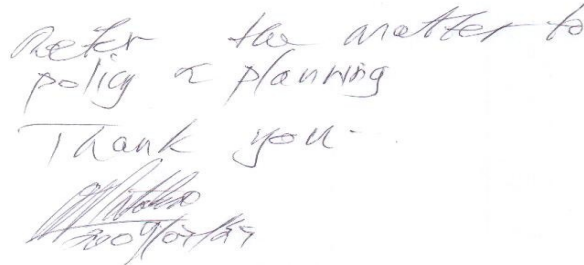 Refer the matter to
policy & planning
Thank you.